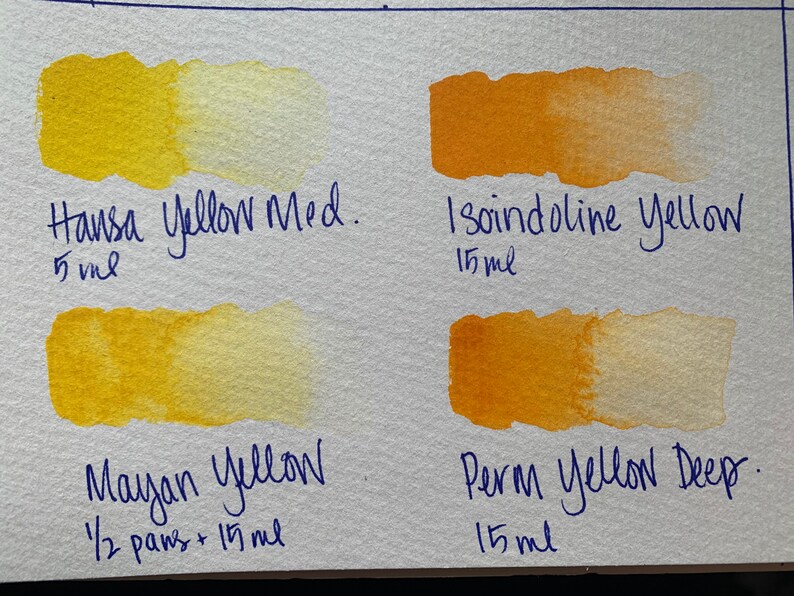 Hansa Yellow Med.
5 ml
Isoindoline Yellow
15 ml
Mayan Yellow
1/2 pans + 15 ml
Perm Yellow Deep.
15 ml